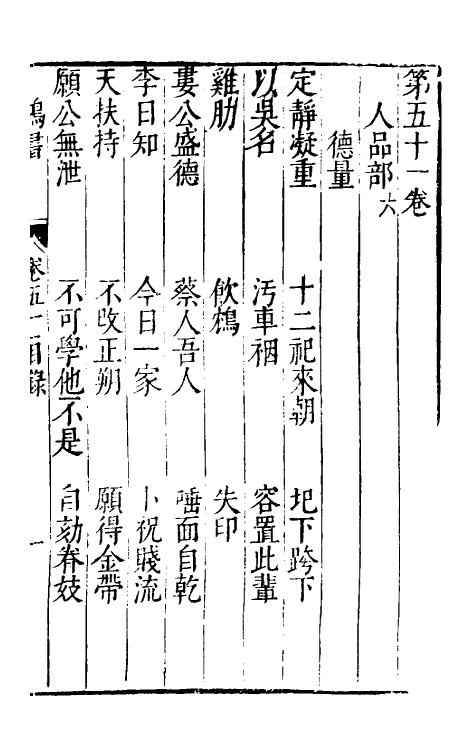 第五十一卷
人品部六
德量
定靜凝重 十二祀來朝 圯下跨下
以吳名 污車裀 容置此輩
雞肋 飲鴆 失印
婁公盛德 蔡人吾人 唾面自乾
李日知 今日一家 卜祝賤流
天扶持 不改正朔 願得金帶
願公無泄 不可學他不是 自劾眷妓
鴻書 卷五十一目錄 一